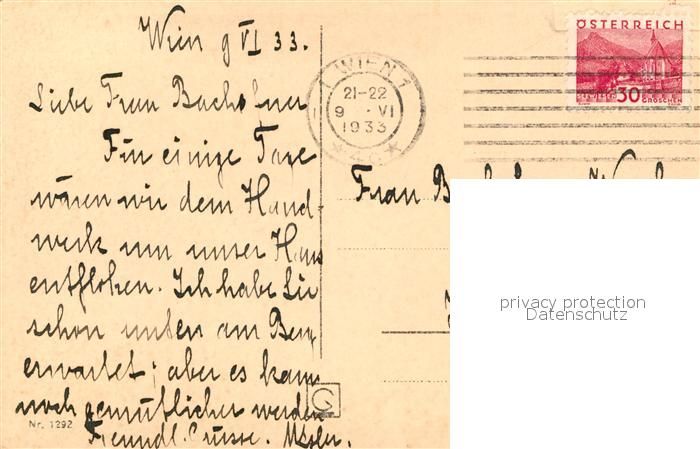 Wien 9 VI 33.
Liebe Frau Bachofner
Für einige Tage
wären wir dem Hand-
werk um unser Haus
entflohen. Ich habe Sie
schon unten am Berg
erwartet; aber es kann
noch gemütlicher werden
Freundl. Grüsse.
Nr. 1292
G
1 WIEN 1
21-22
9 · VI
1933
ÖSTERREICH
30
GROSCHEN
Frau
privacy protection
Datenschutz